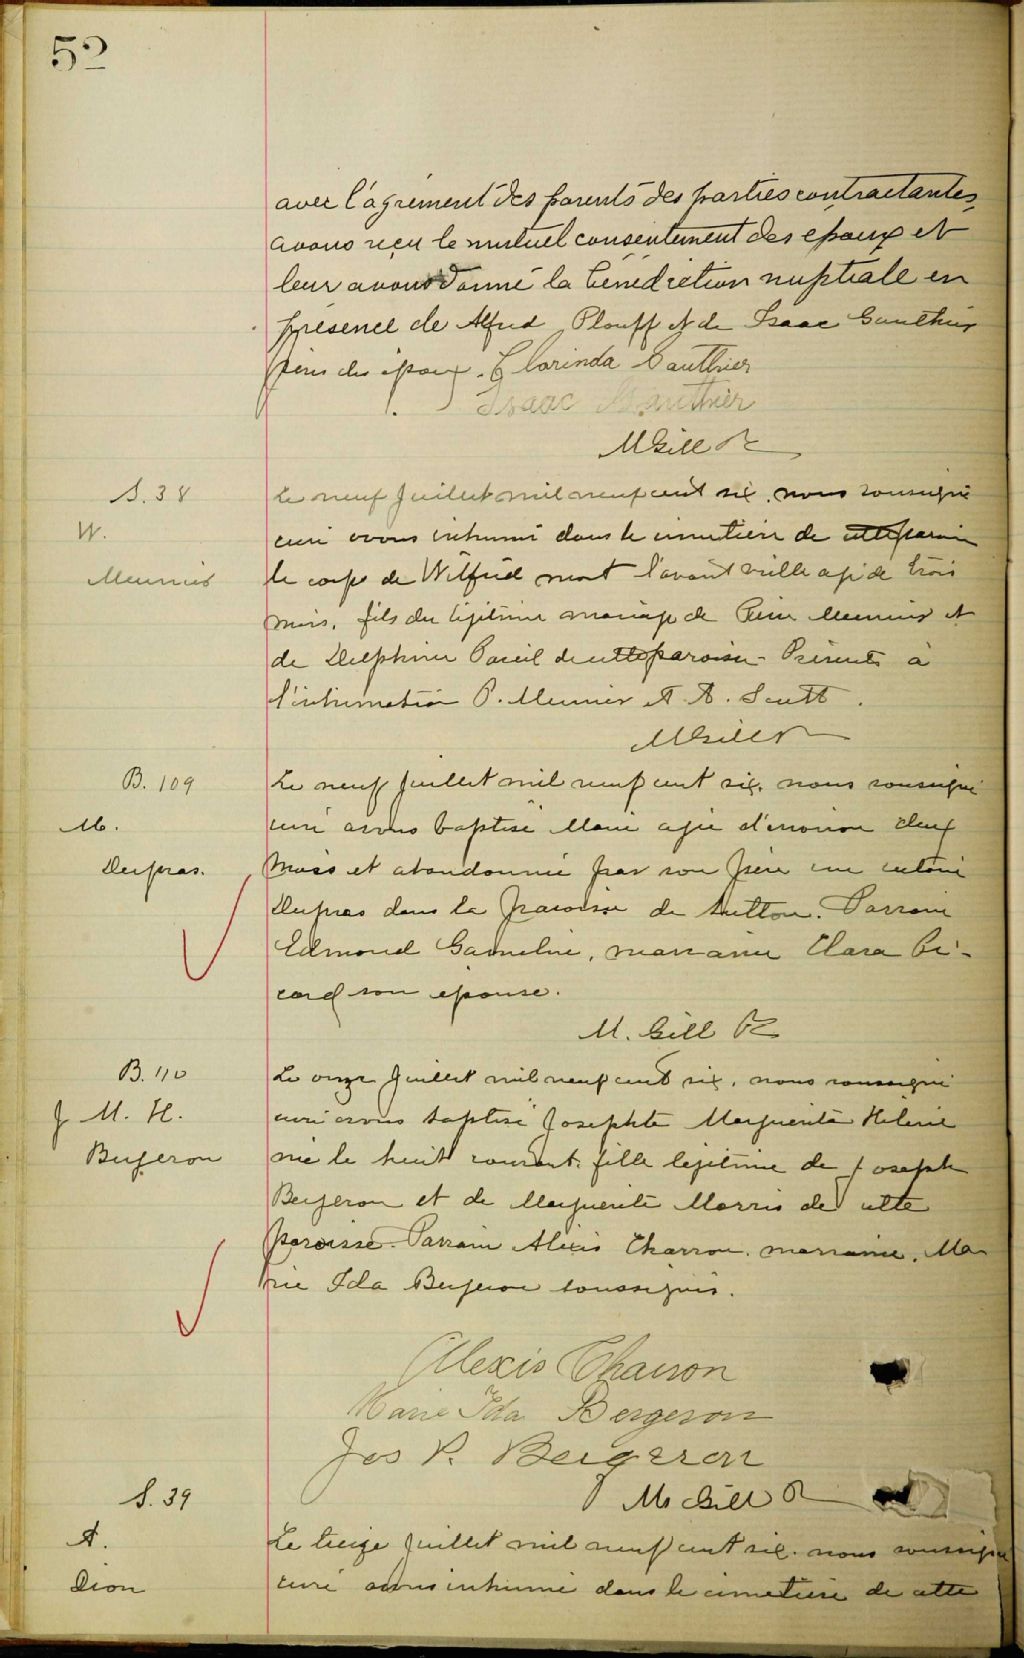 52
avec l'agrément des parents des parties contractantes,
avons reçu le mutuel consentement des epoux et
leur avons donné la bénédiction nuptiale en
présence de Alfred Plouff et de Isaac Gauthier
pères des époux. Clarinda Gauthier
Isaac Gauthier
M Gill Ptr
S. 38
W.
Meunier
Le neuf Juillet mil neuf cent six, nous soussigné
curé avons inhumé dans le cimetière de cette paroisse
le corps de Wilfrid mort l'avant veille agé de trois
mois, fils du légitime mariage de Pierre Meunier et
de Delphine Pareil de cette paroisse. Présents à
l'inhumation P. Meunier et A. Scott.
M Gill Ptr
B. 109
M.
Dupras.
Le neuf Juillet mil neuf cent six, nous soussigné
curé avons baptisé Marie agée d'environ deux
mois et abandonnée par son père un
Dupras dans la paroisse de Sutton. Parrain
Edmond Gameline, marraine Clara Bi-
card son épouse.
M. Gill Ptr
B. 110
J M. H.
Bergeron
Le onze Juillet mil neuf cent six, nous soussigné
curé avons baptisé Josephte Marguerite Hélène
née le huit courant, fille légitime de Joseph
Bergeron et de Marguerite Morris de cette
paroisse. Parrain Alexis Charron, marraine, Ma-
rie Ida Bergeron soussignés.
Alexis Charron
Marie Ida Bergeron
Jos P. Bergeron
M Gill Ptr
S. 39
A.
Dion
Le treize Juillet mil neuf cent six, nous soussigné
curé avons inhumé dans le cimetière de cette